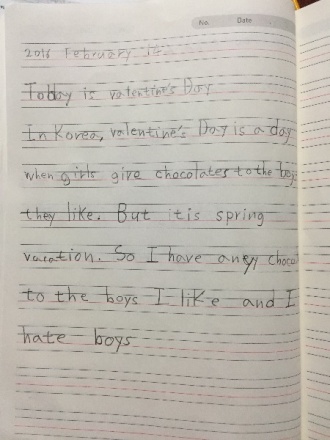 No. Date
2016 February 14.
Today is valentine's Day
In Korea, valentine's Day is a day
when girls give chocolates to the boys
they like. But it is spring
vacation. So I have any choco
to the boys I like and I
hate boys